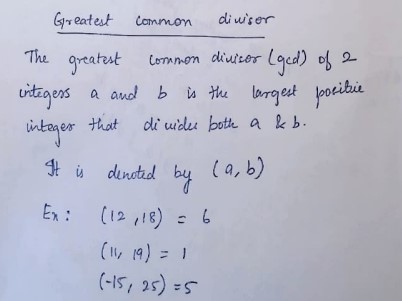 Greatest common divisor
The greatest common divisor (gcd) of 2
integers a and b is the largest positive
integer that divides both a & b.
It is denoted by (a, b)
Ex: (12, 18) = 6
(11, 19) = 1
(-15, 25) = 5